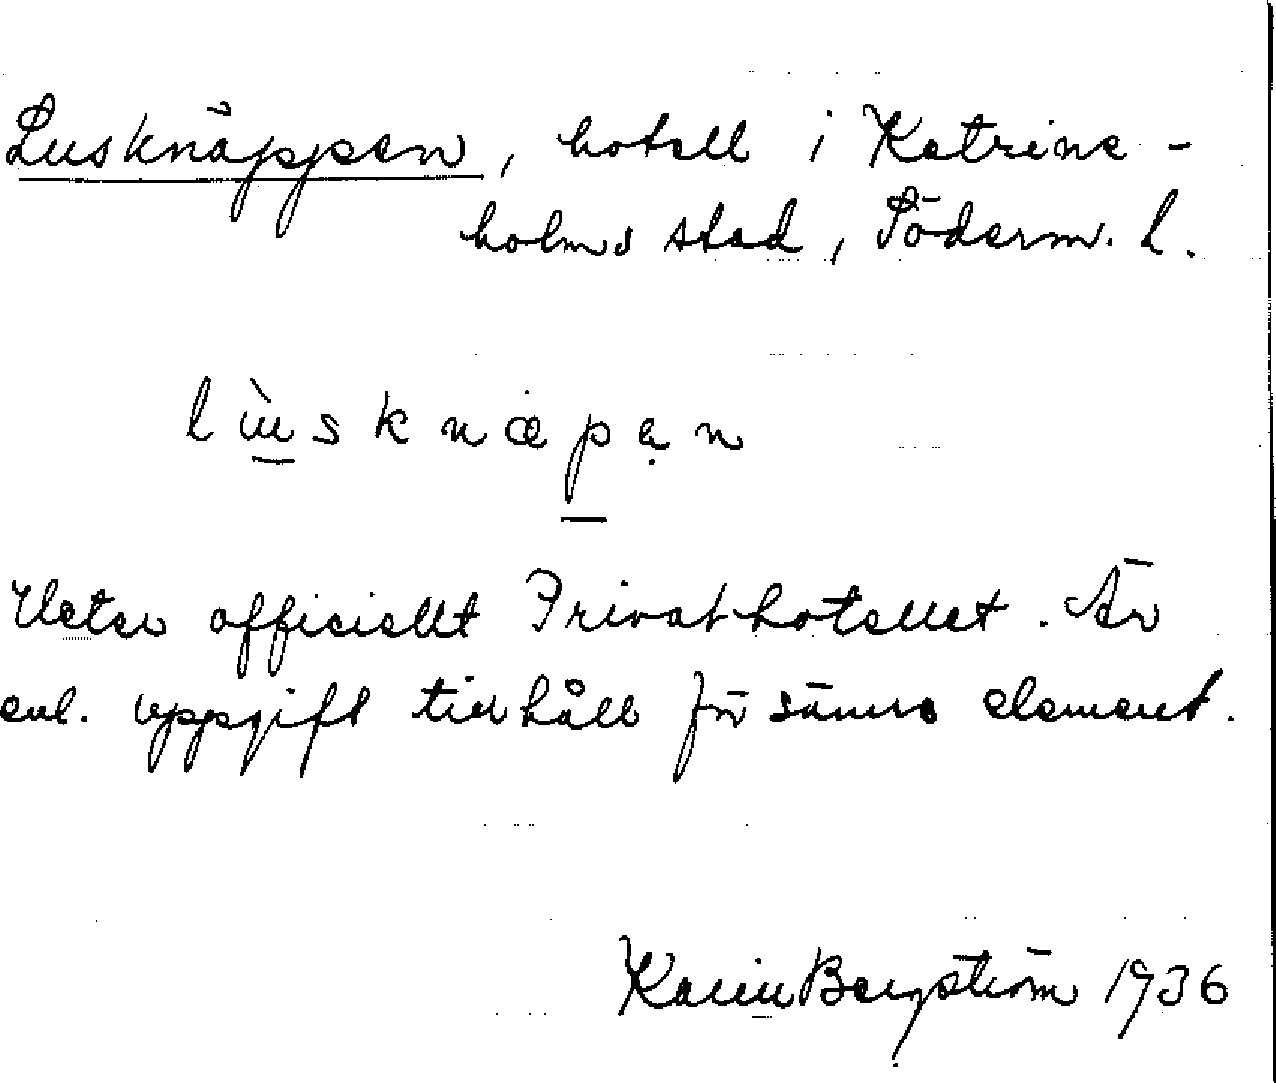 Lusknäppen, hotell i Katrine-
holms stad, Söderm. l.
lùsknæpạn
Heter officiellt Privathotellet. Är
enl. uppgift tillhåll för sämre element.
Karin Bergström 1936